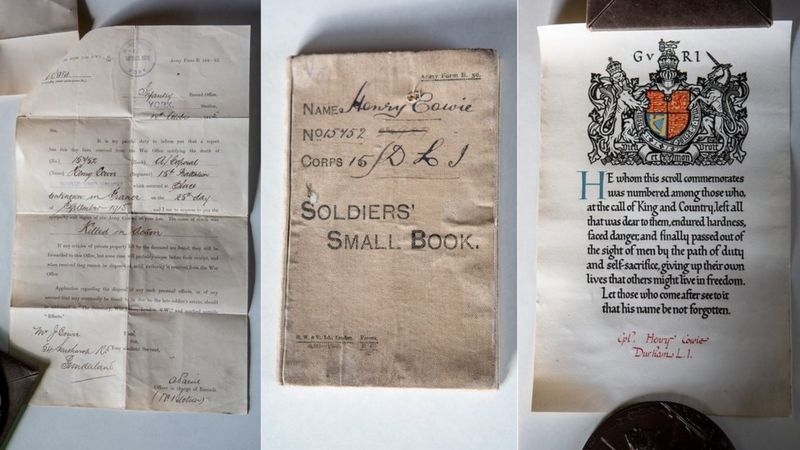 Army Form B. 104—82.
Infantry Record Office,
YORK. Station,
Sir,
It is my painful duty to inform you that a report
has this day been received from the War Office notifying the death of
(No.) 15452 (Rank) A/Corporal
(Name) Henry Cowie (Regiment) 15th Battalion
which occurred at Place
in France on the 25th day
of September 1915, and I am to express to you the
sympathy and regret of the Army Council at your loss. The cause of death was
Killed in Action
If any articles of private property left by the deceased are found, they will be
forwarded to this Office, but some time will probably elapse before their receipt, and
when received they cannot be disposed of until authority is received from the War
Office.
Application regarding the disposal of any such personal effects, or of any
amount that may eventually be found to be due to the late soldier's estate, should
be addressed to "The Secretary, War Office, London, S.W.," and marked outside
"Effects."
Mr J Cowie
Sunderland
Officer in charge of Records.
Army Form B. 50.
NAME Henry Cowie
No 15452
CORPS 15/D L I
SOLDIERS'
SMALL BOOK.
G V R I
HE whom this scroll commemorates
was numbered among those who,
at the call of King and Country, left all
that was dear to them, endured hardness,
faced danger, and finally passed out of
the sight of men by the path of duty
and self-sacrifice, giving up their own
lives that others might live in freedom.
Let those who come after see to it
that his name be not forgotten.
Cpl. Henry Cowie
Durham L.I.